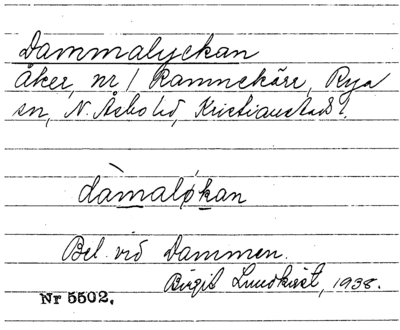 Dammalyckan
åker, nr 1 Ramnekärr, Rya
sn, N. Åsbo hd, Kristianstads l.
dàmaløkan
Bel. vid Dammen.
Birgit Lundkvist, 1938.
Nr 5502.